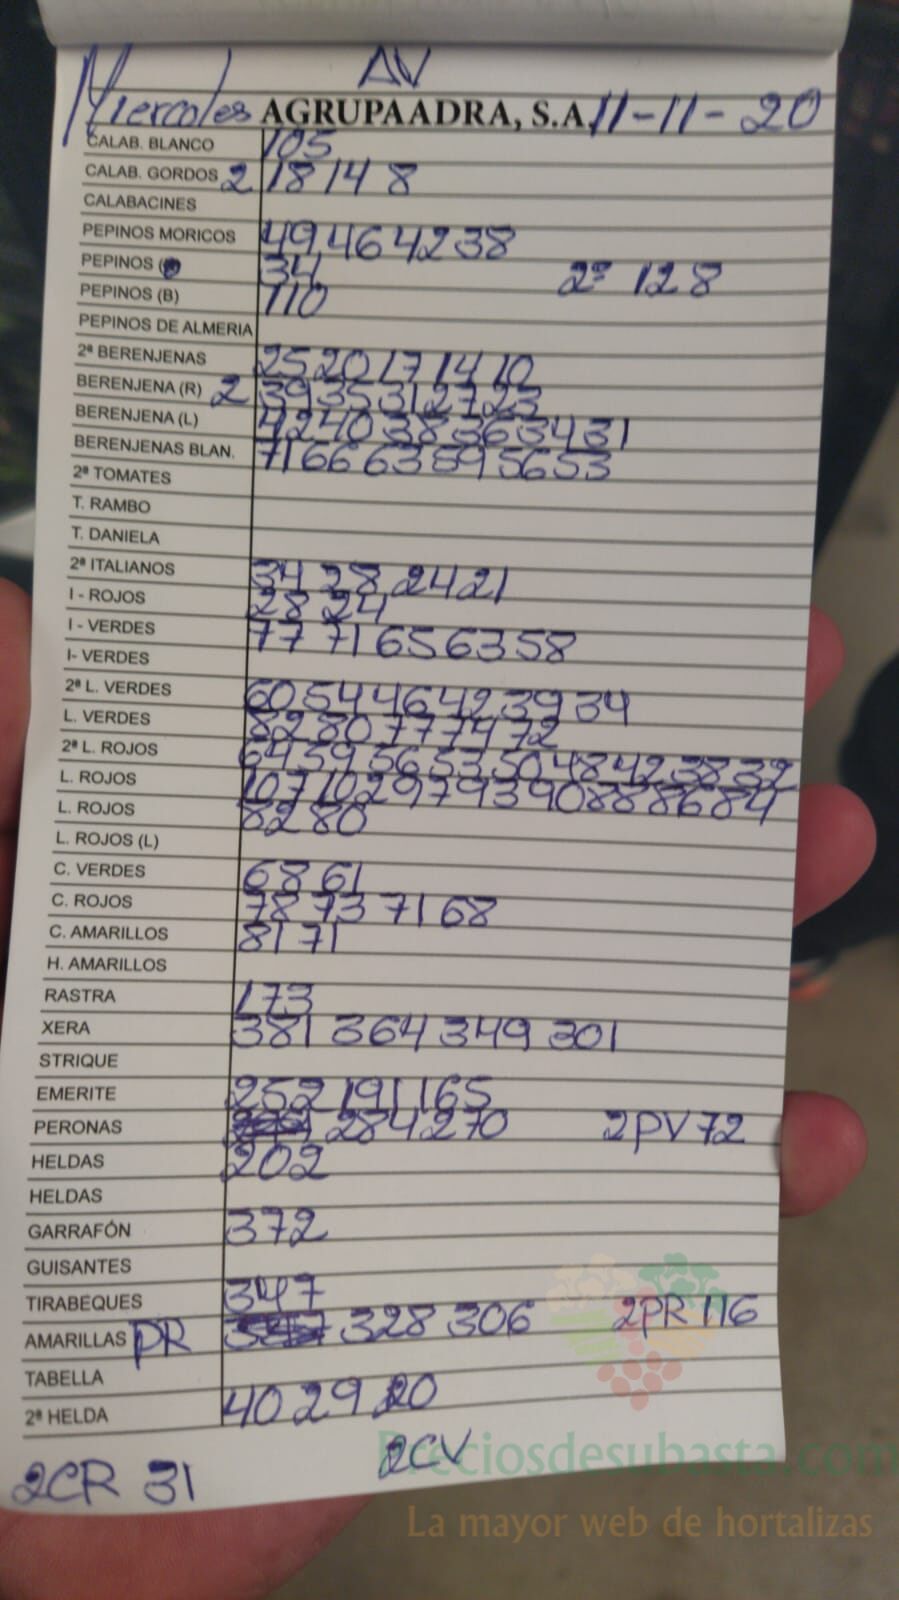 AV
Miercoles AGRUPAADRA, S.A. 11-11-20
CALAB. BLANCO 105
CALAB. GORDOS 2 18 14 8
CALABACINES
PEPINOS MORICOS 49 46 42 38
PEPINOS ( 34 2ª 12 8
PEPINOS (B) 110
PEPINOS DE ALMERIA
2ª BERENJENAS 25 20 17 14 10
BERENJENA (R) 2 39 35 31 27 23
BERENJENA (L) 42 40 38 36 34 31
BERENJENAS BLAN. 71 66 63 59 56 53
2ª TOMATES
T. RAMBO
T. DANIELA
2ª ITALIANOS 34 28 24 21
I - ROJOS 28 24
I - VERDES 77 71 65 63 58
I- VERDES
2ª L. VERDES 60 54 46 42 39 34
L. VERDES 82 80 77 74 72
2ª L. ROJOS 64 59 56 53 50 48 42 38 32
L. ROJOS 107 102 97 93 90 88 86 84
L. ROJOS 82 80
L. ROJOS (L)
C. VERDES 68 61
C. ROJOS 78 73 71 68
C. AMARILLOS 81 71
H. AMARILLOS
RASTRA 173
XERA 381 364 349 301
STRIQUE
EMERITE 252 191 165
PERONAS 284 270 2PV 72
HELDAS 202
HELDAS
GARRAFÓN 372
GUISANTES
TIRABEQUES 347
AMARILLAS PR 328 306 2PR 116
TABELLA
2ª HELDA 40 29 20
2CR 31 2CV
Preciosdesubasta.com
La mayor web de hortalizas